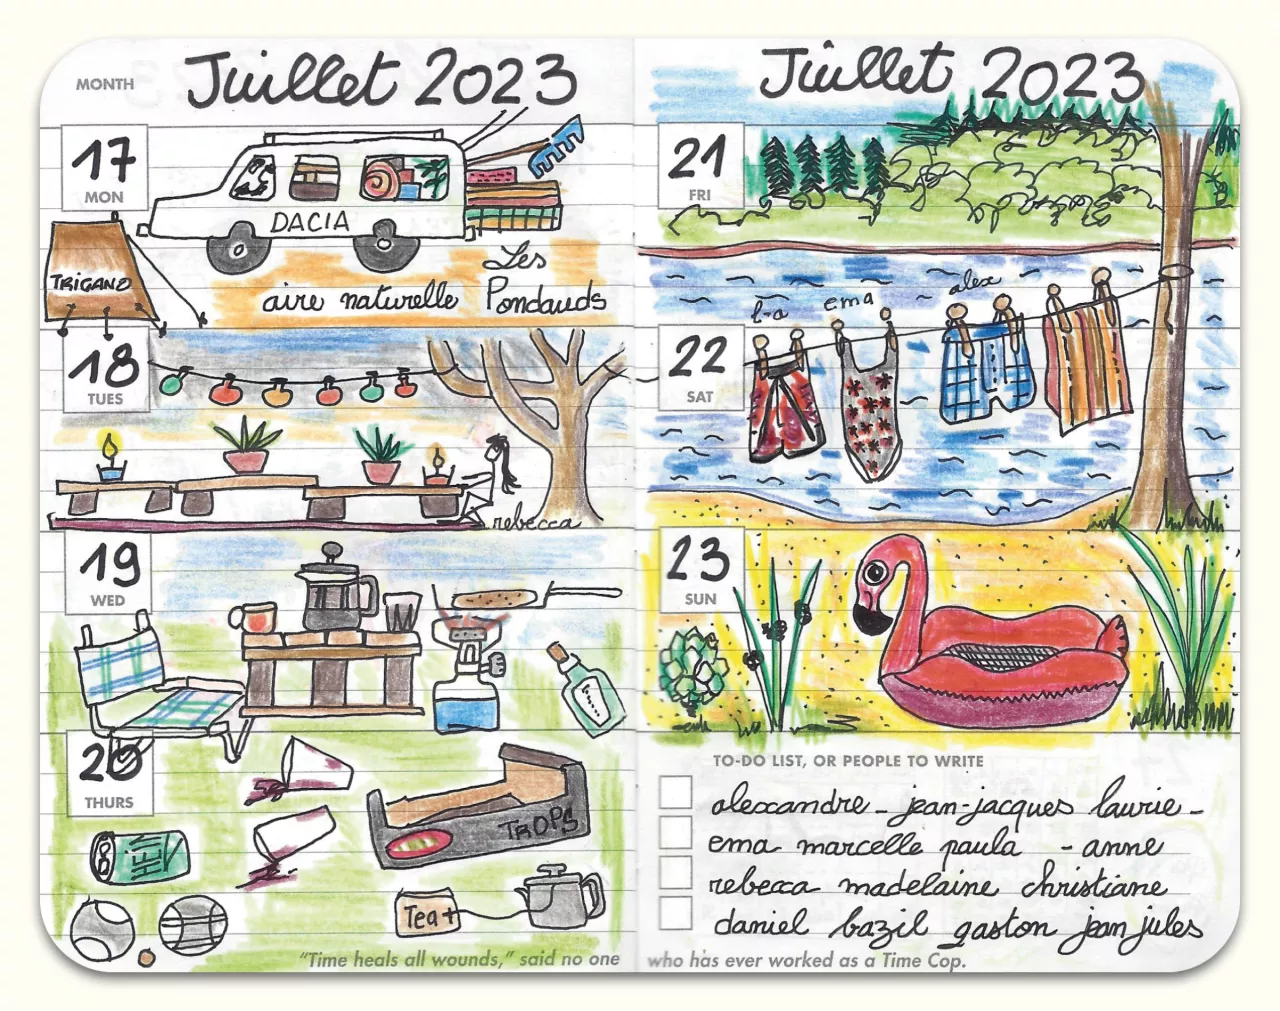 MONTH
Juillet 2023
17
MON
DACIA
TRIGANO
Les
aire naturelle Pondauds
18
TUES
rebecca
19
WED
20
THURS
HEI
TROPS
Tea+
"Time heals all wounds," said no one
Juillet 2023
21
FRI
l-a ema alex
22
SAT
23
SUN
TO-DO LIST, OR PEOPLE TO WRITE
alexandre - jean-jacques laurie -
ema marcelle paula - anne
rebecca madelaine christiane
daniel bazil gaston jean jules
who has ever worked as a Time Cop.